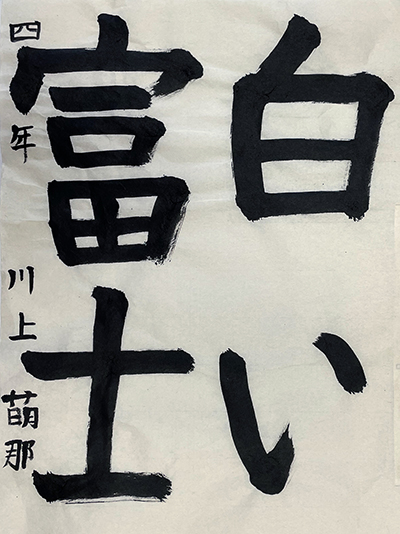 白い
富士
四年 川上萌那